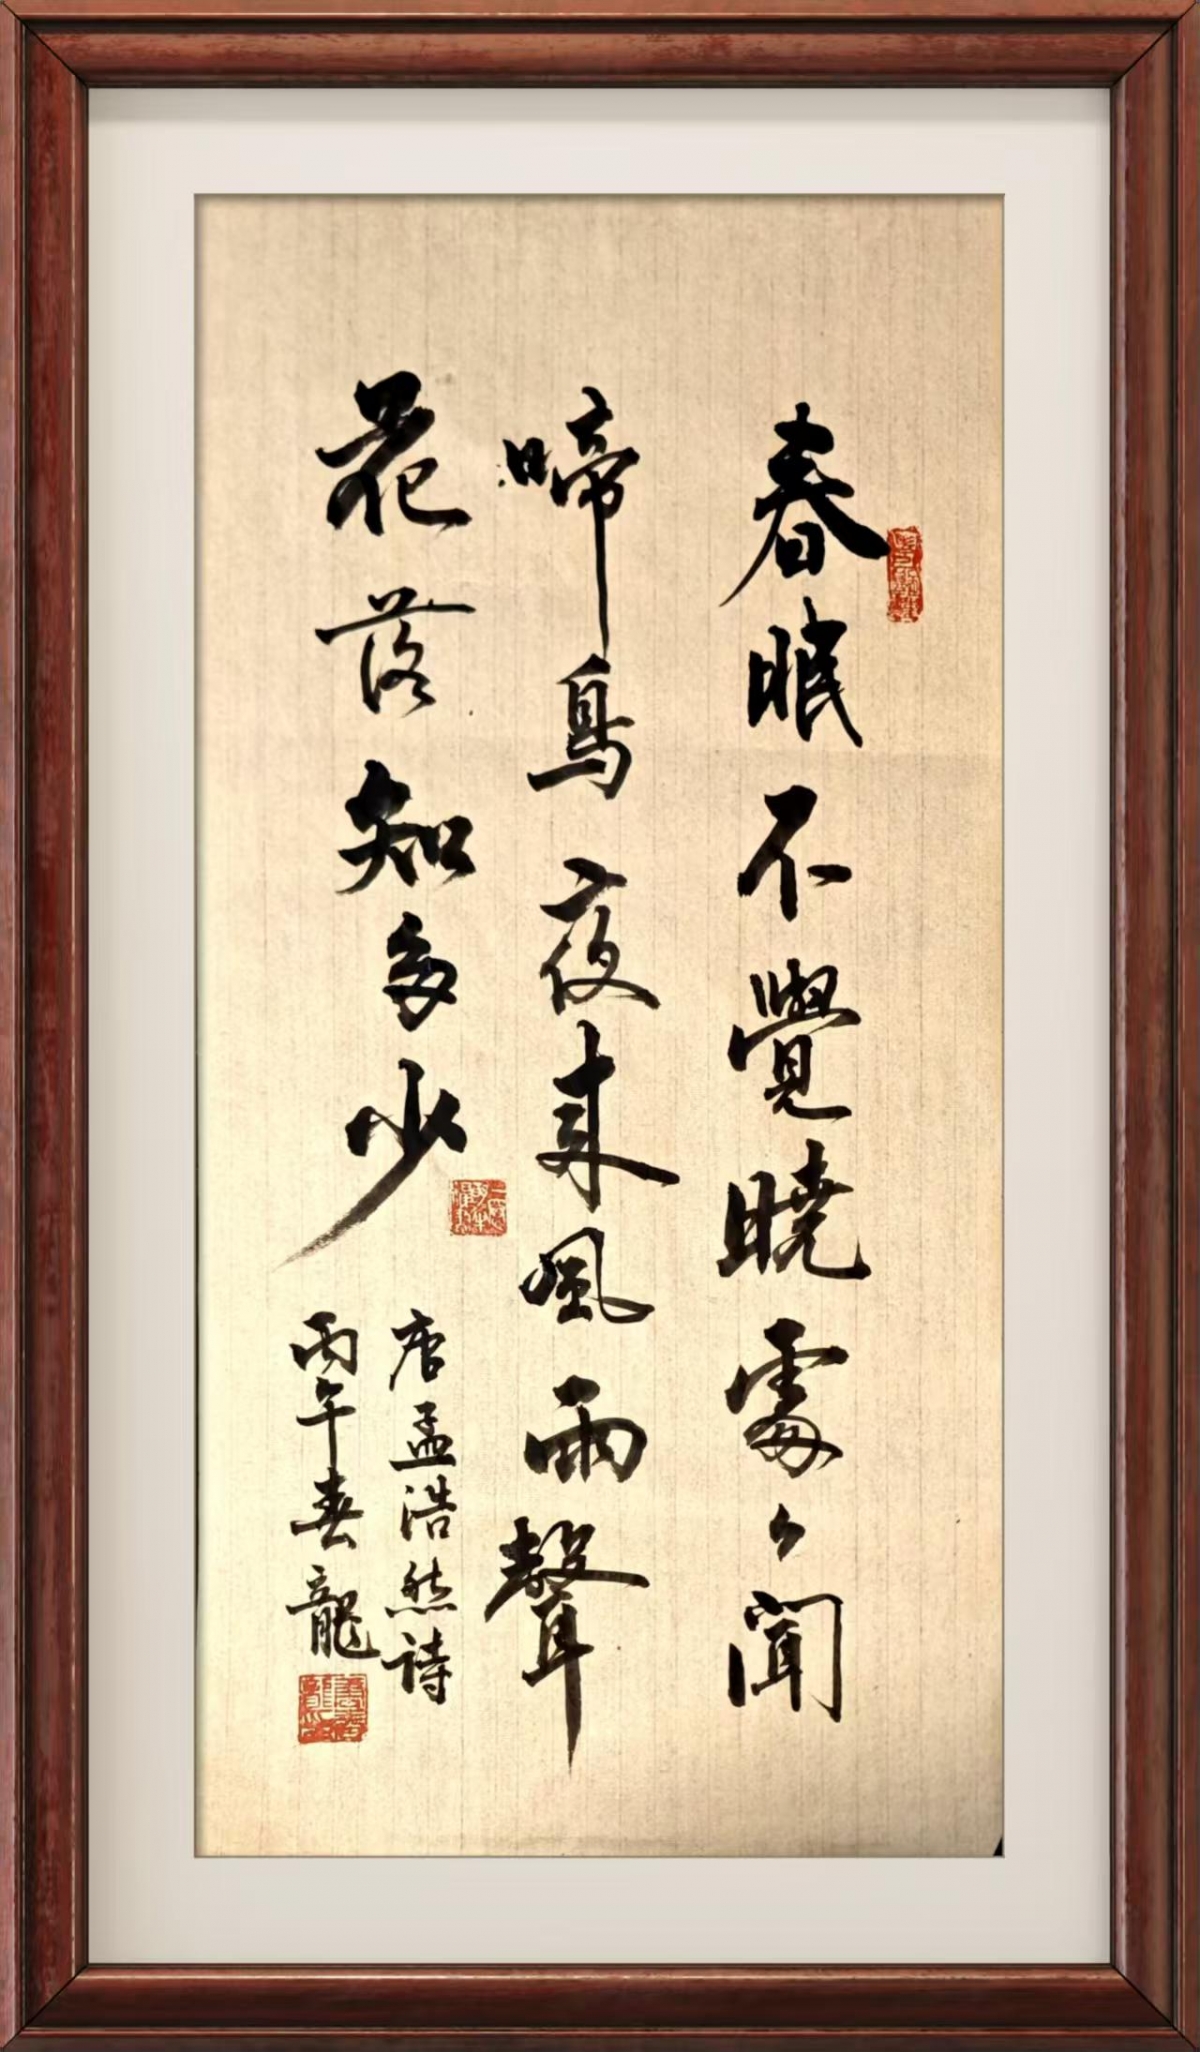 春眠不覺曉處々聞
啼鳥夜来風雨聲
花落知多少
唐孟浩然詩
丙午春龍